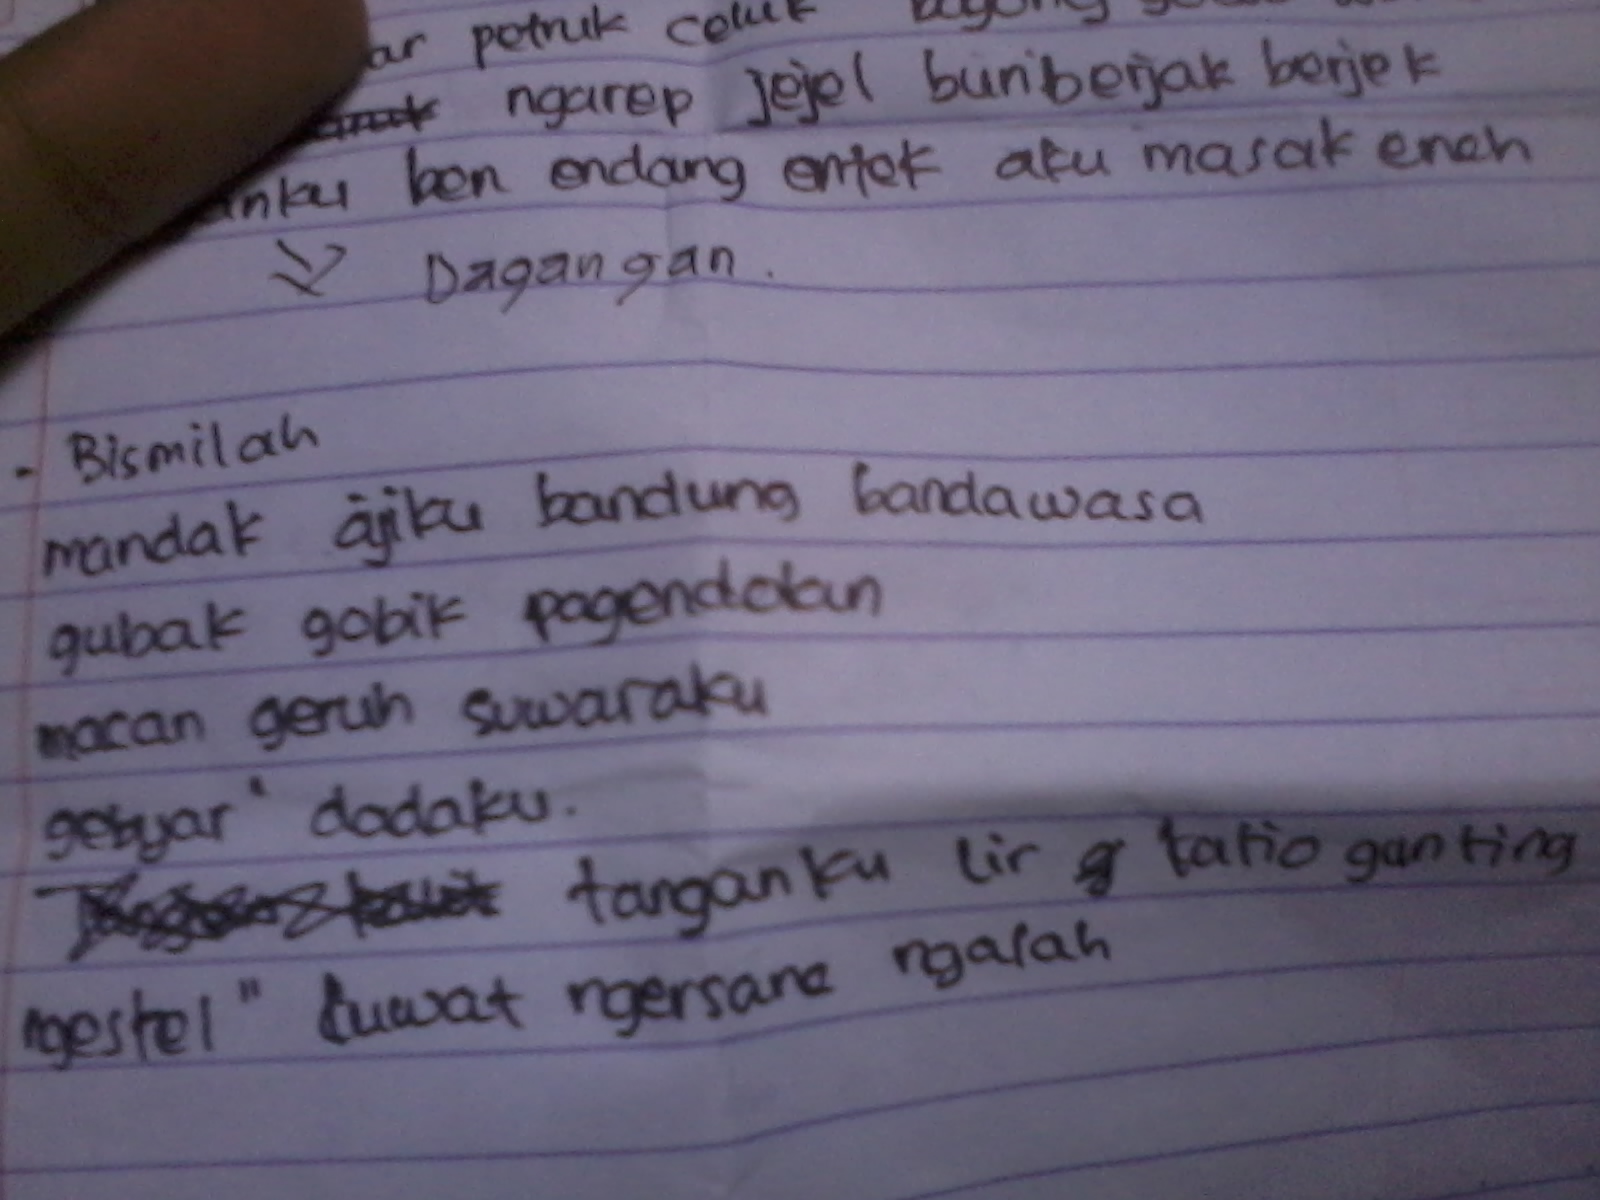 ar petruk celuk bagong
ngarep jejel buriberjak berjek
anku ben endang entek aku masak eneh
Dagangan.
- Bismilah
mandak ajiku bandung bandawasa
gubak gobik pagendolan
macan geruh suwaraku
gebyar " dadaku.
tanganku lir g tatio ganting
ngestel " kuwat ngersane ngalah